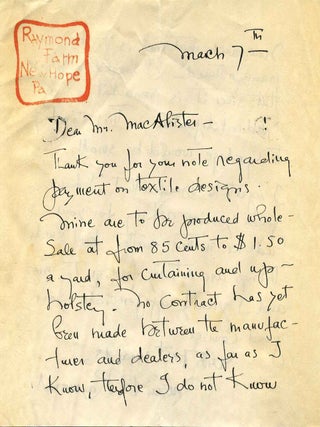 Raymond
Farm
New Hope
Pa
Mach 7th
Dear Mr. MacAlister –
Thank you for your note regarding
payment on textile designs.
Mine are to be produced whole-
sale at from 85 cents to $1.50
a yard, for curtaining and up-
holstey. No contract has yet
been made between the manufac-
turer and dealers, as far as I
know, therefore I do not know